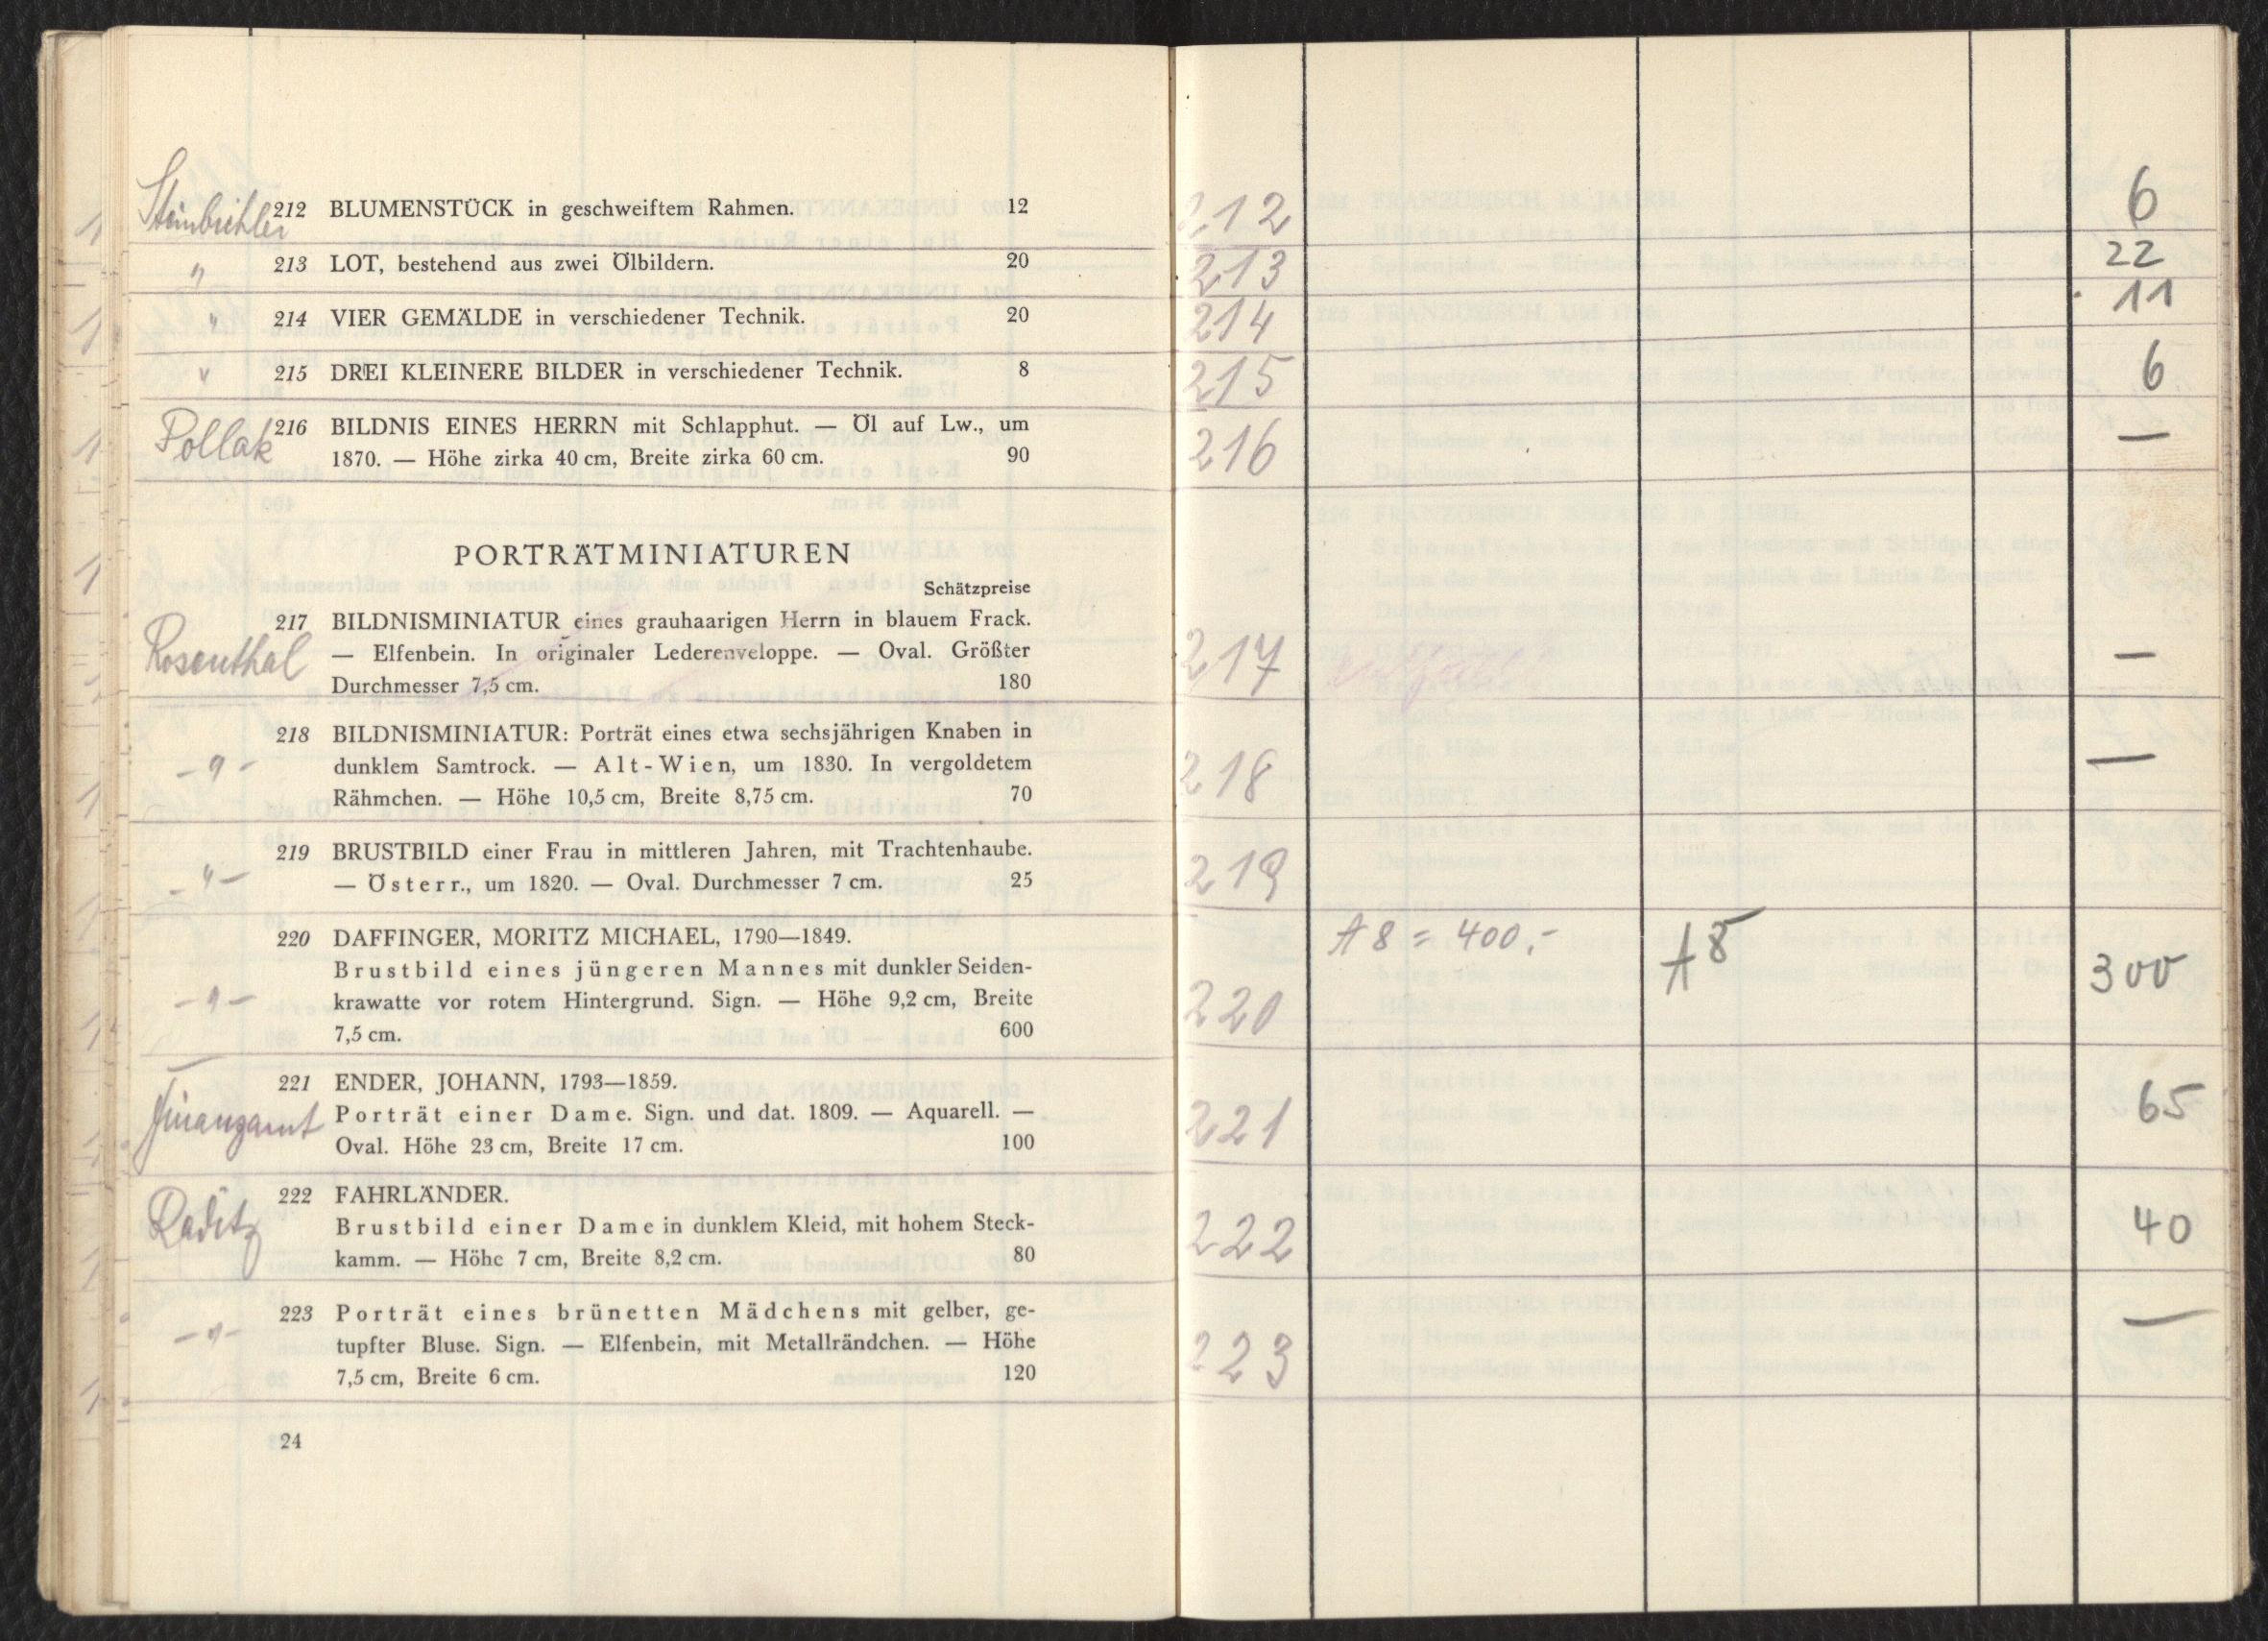 Steinbichler 212 BLUMENSTÜCK in geschweiftem Rahmen. 12
" 213 LOT, bestehend aus zwei Ölbildern. 20
" 214 VIER GEMÄLDE in verschiedener Technik. 20
" 215 DREI KLEINERE BILDER in verschiedener Technik. 8
Pollak 216 BILDNIS EINES HERRN mit Schlapphut. — Öl auf Lw., um
1870. — Höhe zirka 40 cm, Breite zirka 60 cm. 90
PORTRÄTMINIATUREN
Schätzpreise
217 BILDNISMINIATUR eines grauhaarigen Herrn in blauem Frack.
Rosenthal — Elfenbein. In originaler Lederenveloppe. — Oval. Größter
Durchmesser 7,5 cm. 180
218 BILDNISMINIATUR: Porträt eines etwa sechsjährigen Knaben in
- " - dunklem Samtrock. — Alt-Wien, um 1830. In vergoldetem
Rähmchen. — Höhe 10,5 cm, Breite 8,75 cm. 70
219 BRUSTBILD einer Frau in mittleren Jahren, mit Trachtenhaube.
- " - — Österr., um 1820. — Oval. Durchmesser 7 cm. 25
220 DAFFINGER, MORITZ MICHAEL, 1790—1849.
Brustbild eines jüngeren Mannes mit dunkler Seiden-
- " - krawatte vor rotem Hintergrund. Sign. — Höhe 9,2 cm, Breite
7,5 cm. 600
221 ENDER, JOHANN, 1793—1859.
Finanzamt Porträt einer Dame. Sign. und dat. 1809. — Aquarell. —
Oval. Höhe 23 cm, Breite 17 cm. 100
222 FAHRLÄNDER.
Raditz Brustbild einer Dame in dunklem Kleid, mit hohem Steck-
kamm. — Höhe 7 cm, Breite 8,2 cm. 80
223 Porträt eines brünetten Mädchens mit gelber, ge-
- " - tupfter Bluse. Sign. — Elfenbein, mit Metallrändchen. — Höhe
7,5 cm, Breite 6 cm. 120
24
212 6
213 22
214 11
215 6
216 —
217 —
218 —
219
A 8 = 400,- A 8
220 300
221 65
222 40
223 —